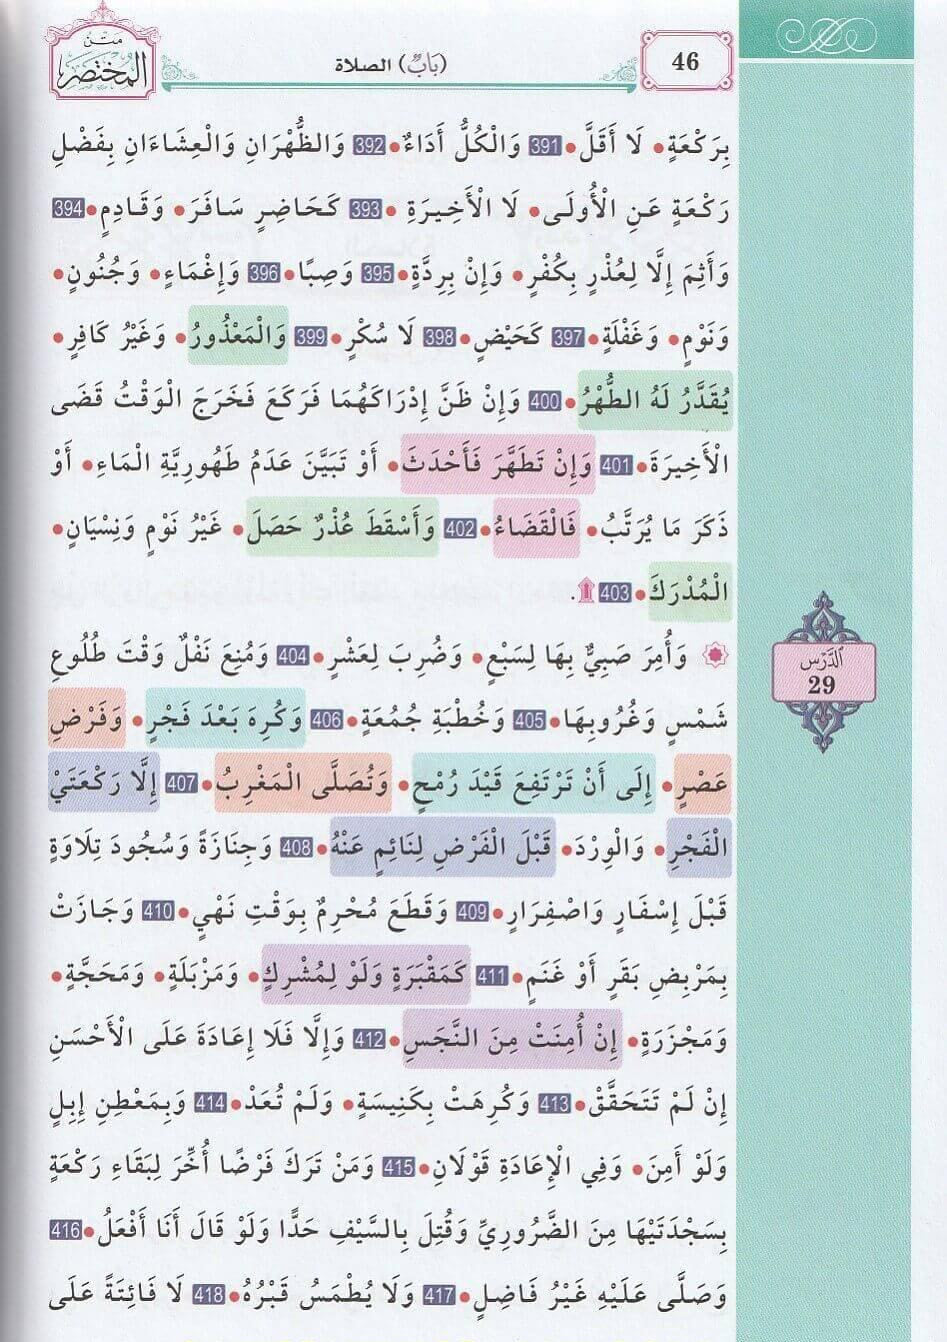 46
(بَابٌ) الصلاة
متن
المختصر
بِرَكْعَةٍ• لَا أَقَلَّ• 391 وَالْكُلُّ أَدَاءٌ• 392 وَالظُّهْرَانِ وَالْعِشَاءَانِ بِفَضْلِ
رَكْعَةٍ عَنِ الْأُولَى• لَا الْأَخِيرَةِ• 393 كَحَاضِرٍ سَافَرَ• وَقَادِمٍ• 394
وَأَثِمَ إِلَّا لِعُذْرٍ بِكُفْرٍ• وَإِنْ بِرِدَّةٍ• 395 وَصِبًا• 396 وَإِغْمَاءٍ• وَجُنُونٍ•
وَنَوْمٍ• وَغَفْلَةٍ• 397 كَحَيْضٍ• 398 لَا سُكْرٍ• 399 وَالْمَعْذُورُ• وَغَيْرُ كَافِرٍ•
يُقَدَّرُ لَهُ الطُّهْرُ• 400 وَإِنْ ظَنَّ إِدْرَاكَهُمَا فَرَكَعَ فَخَرَجَ الْوَقْتُ قَضَى
الْأَخِيرَةَ• 401 وَإِنْ تَطَهَّرَ فَأَحْدَثَ• أَوْ تَبَيَّنَ عَدَمُ طَهُورِيَّةِ الْمَاءِ• أَوْ
ذَكَرَ مَا يُرَتَّبُ• فَالْقَضَاءُ• 402 وَأَسْقَطَ عُذْرٌ حَصَلَ• غَيْرُ نَوْمٍ وَنِسْيَانٍ•
الْمُدْرَكَ• 403.
وَأُمِرَ صَبِيٌّ بِهَا لِسَبْعٍ• وَضُرِبَ لِعَشْرٍ• 404 وَمُنِعَ نَفْلٌ وَقْتَ طُلُوعِ
شَمْسٍ وَغُرُوبِهَا• 405 وَخُطْبَةِ جُمُعَةٍ• 406 وَكُرِهَ بَعْدَ فَجْرٍ• وَفَرْضِ
عَصْرٍ• إِلَى أَنْ تَرْتَفِعَ قَيْدَ رُمْحٍ• وَتُصَلَّى الْمَغْرِبُ• 407 إِلَّا رَكْعَتَيْ
الْفَجْرِ• وَالْوِرْدَ• قَبْلَ الْفَرْضِ لِنَائِمٍ عَنْهُ• 408 وَجِنَازَةً وَسُجُودَ تِلَاوَةٍ
قَبْلَ إِسْفَارٍ وَاصْفِرَارٍ• 409 وَقَطَعَ مُحْرِمٌ بِوَقْتِ نَهْيٍ• 410 وَجَازَتْ
بِمَرْبِضِ بَقَرٍ أَوْ غَنَمٍ• 411 كَمَقْبَرَةٍ وَلَوْ لِمُشْرِكٍ• وَمَزْبَلَةٍ• وَمَحَجَّةٍ•
وَمَجْزَرَةٍ• إِنْ أُمِنَتْ مِنَ النَّجَسِ• 412 وَإِلَّا فَلَا إِعَادَةَ عَلَى الْأَحْسَنِ
إِنْ لَمْ تَتَحَقَّقْ• 413 وَكُرِهَتْ بِكَنِيسَةٍ• وَلَمْ تُعَدْ• 414 وَبِمَعْطِنِ إِبِلٍ
وَلَوْ أَمِنَ• وَفِي الْإِعَادَةِ قَوْلَانِ• 415 وَمَنْ تَرَكَ فَرْضًا أُخِّرَ لِبَقَاءِ رَكْعَةٍ
بِسَجْدَتَيْهَا مِنَ الضَّرُورِيِّ وَقُتِلَ بِالسَّيْفِ حَدًّا وَلَوْ قَالَ أَنَا أَفْعَلُ• 416
وَصَلَّى عَلَيْهِ غَيْرُ فَاضِلٍ• 417 وَلَا يُطْمَسُ قَبْرُهُ• 418 لَا فَائِتَةً عَلَى
الدَّرْسُ
29